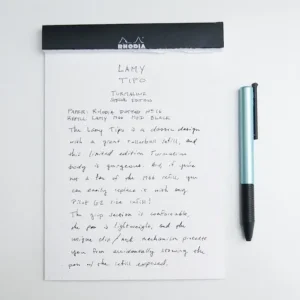 RHODIA
LAMY
TIPO
TURMALINE
PAPER: RHODIA DOTTED No.16
REFILL: LAMY M66 BLACK
The Lamy Tipo is a modern design
with a great rollerball refill, and
this limited edition Turmaline
body is gorgeous. And if you're
not a fan of the M66 refill you
can easily replace it with any
Pilot G2 size refill!
The grip section is comfortable,
the pen is lightweight, and the
unique clip/end mechanism prevents
you from accidentally storing the
pen w/ the refill exposed.